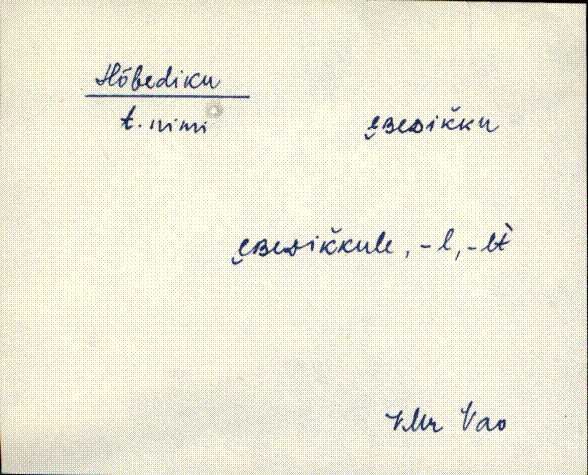 Hõbediku
t. nimi
e̮ʙᴇᴅik̆ku
e̮ʙᴇᴅik̆kule, -l, -lt̀
VMr Vao